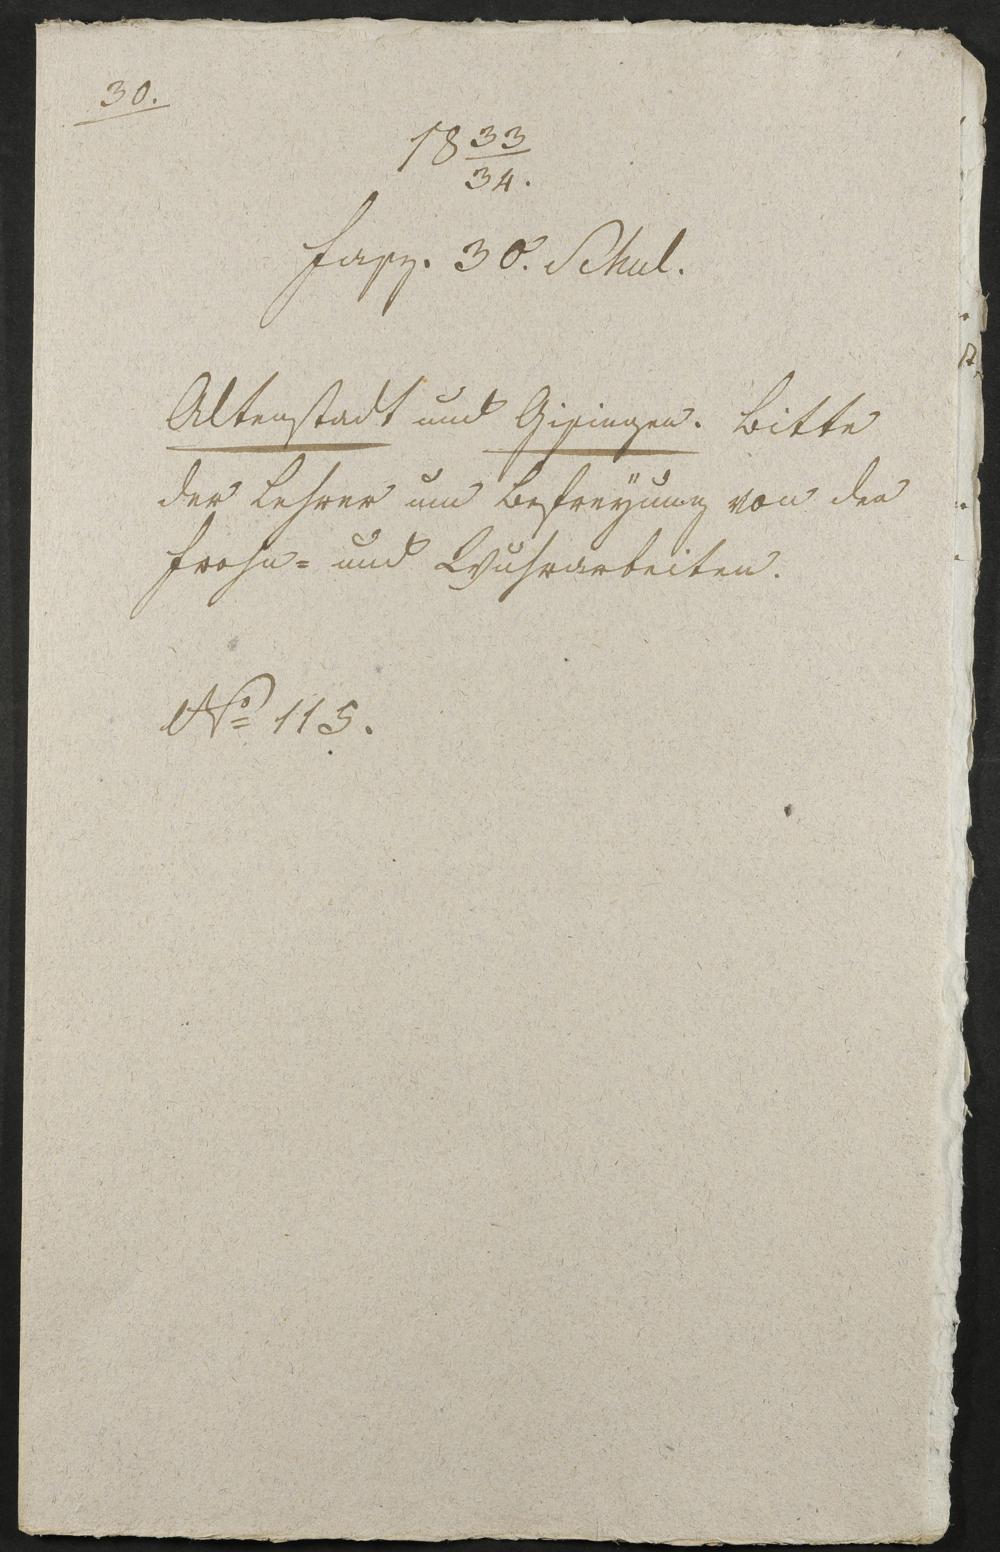 30.
18 33/34.
Fasz. 30. Schul.
Altenstadt und Gisingen. Bitte
der Lehrer um Befreÿung von den
Frohn- und Wuhrarbeiten.
No 115.